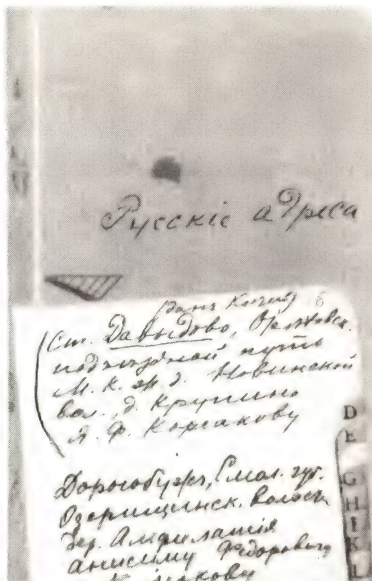 Русскіе адреса
Ст. Давыдово, Ореховск.
подъездной путь
М. К. ж. д. Новинской
вол. д. Крупино
Я. Ф. Корсакову
Дорогобуж, Смол. губ.
Озерищинск. волость
дер.
анисиму Федоровичу
D
E
G H I K L